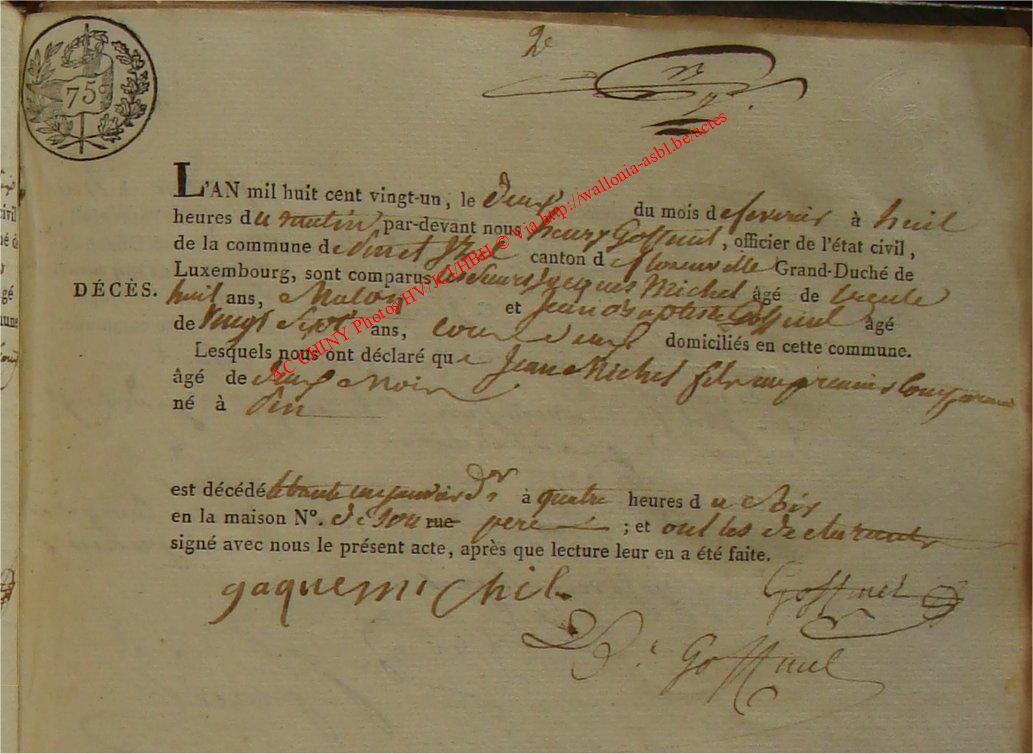 2e
75
L'AN mil huit cent vingt-un, le deux du mois de fevrier à huit
heures du matin par-devant nous henry Goffinet, officier de l'état civil,
de la commune de pin et Izel canton de florenville Grand-Duché de
Luxembourg, sont comparus les sieurs Jacques Michel âgé de trente
DÉCÈS.
huit ans, Maçon et Jean Baptiste Goffinet âgé
de vingt sept ans, domiciliés en cette commune.
Lesquels nous ont déclaré que Jean Michel fils du premier comparant
âgé de deux mois
né à pin
est décédé le trente un janvier dr à quatre heures du soir
en la maison N°. de son rue pere ; et ont les declarants
signé avec nous le présent acte, après que lecture leur en a été faite.
gaque michel
Goffinet
Goffinet
AC CHINY Photos HV/KUHBH © Via http://wallonia-asbl.be/actes